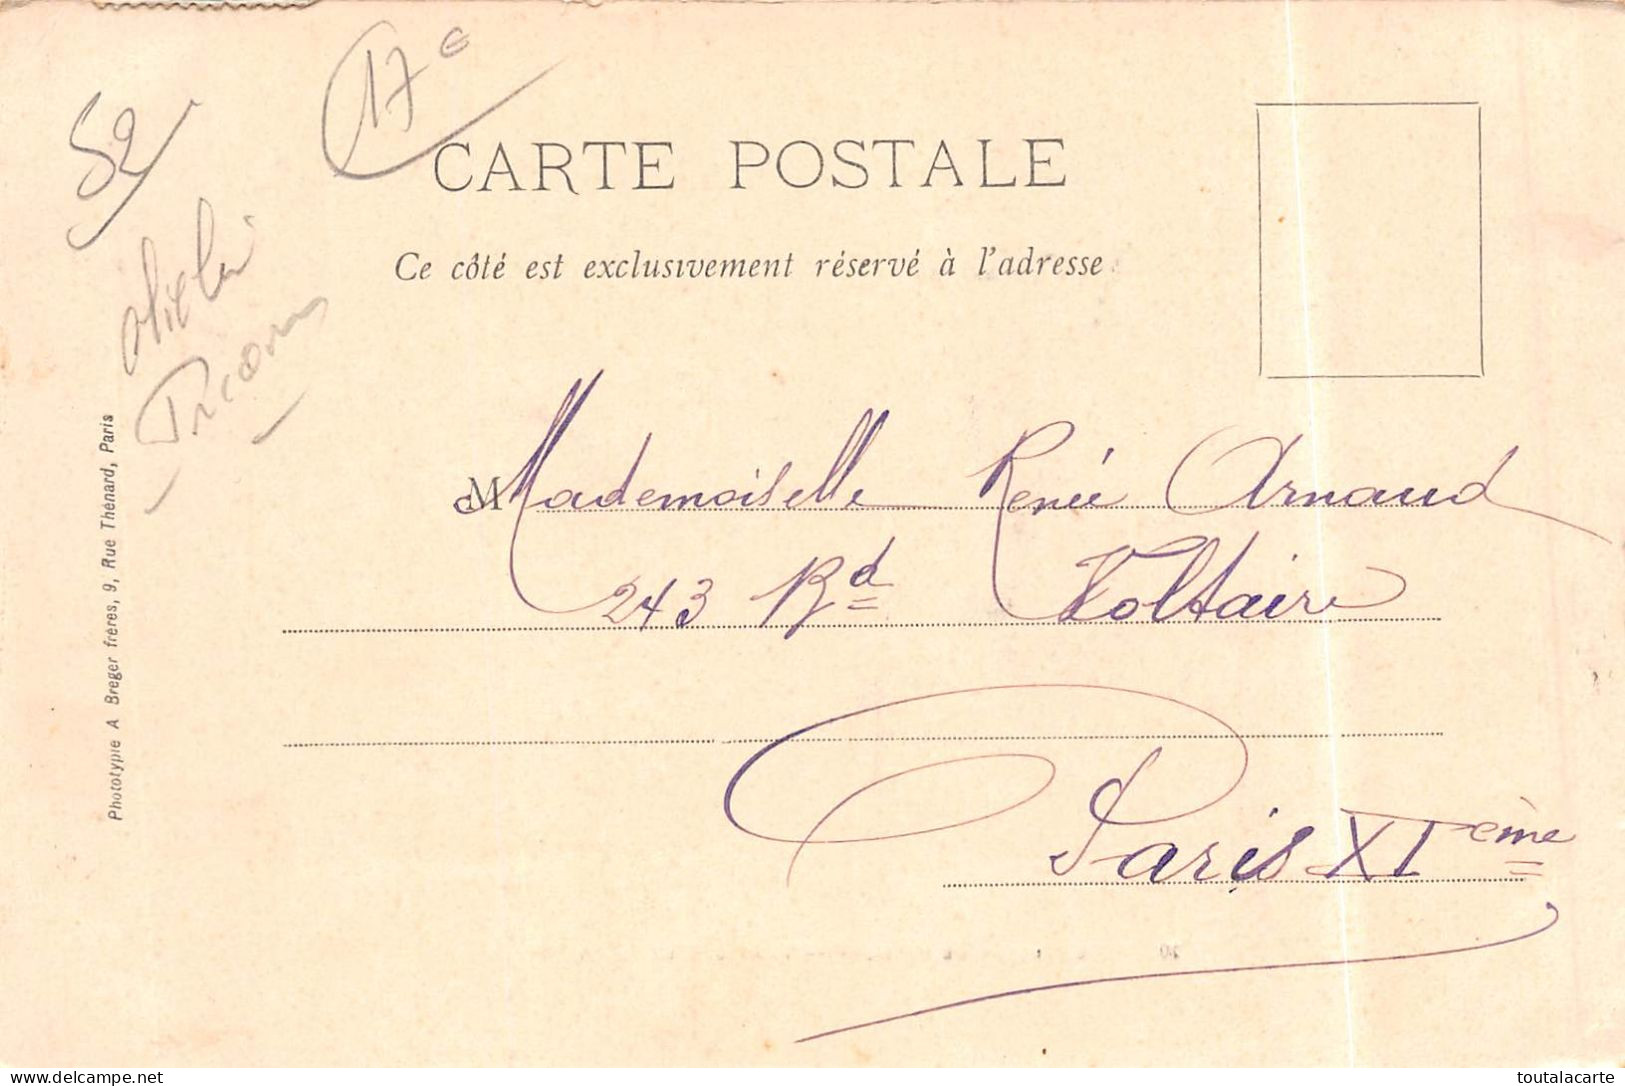 17e
52
CARTE POSTALE
Ce côté est exclusivement réservé à l'adresse
M Mademoiselle Renée Arnaud
243 Bd Voltaire
Paris XIème
Phototypie A Breger frères, 9, Rue Thénard, Paris
www.delcampe.net
toutalacarte